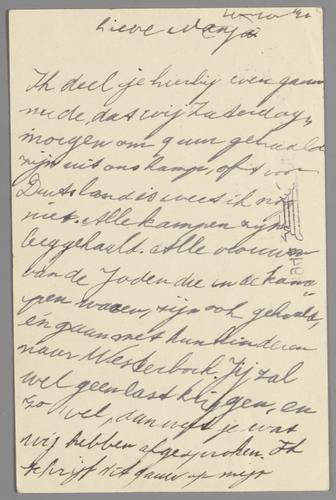 Lieve Manja
Ik deel je hierbij even gauw
mede, dat wij Zaterdag-
morgen om 9 uur gehaald
zijn uit ons kamp, of 't voor
Duitsland is weet ik nog
niet. Alle kampen zijn
leeggehaald. Alle vrouwen
van de Joden die in de kam-
pen waren, zijn ook gehaald,
en gaan met hun kinderen
naar Westerbork. Jij zal
wel geen last krijgen, en
zo wel, dan weet je wat
wij hebben afgesproken. Ik
schrijf dit gauw op mijn